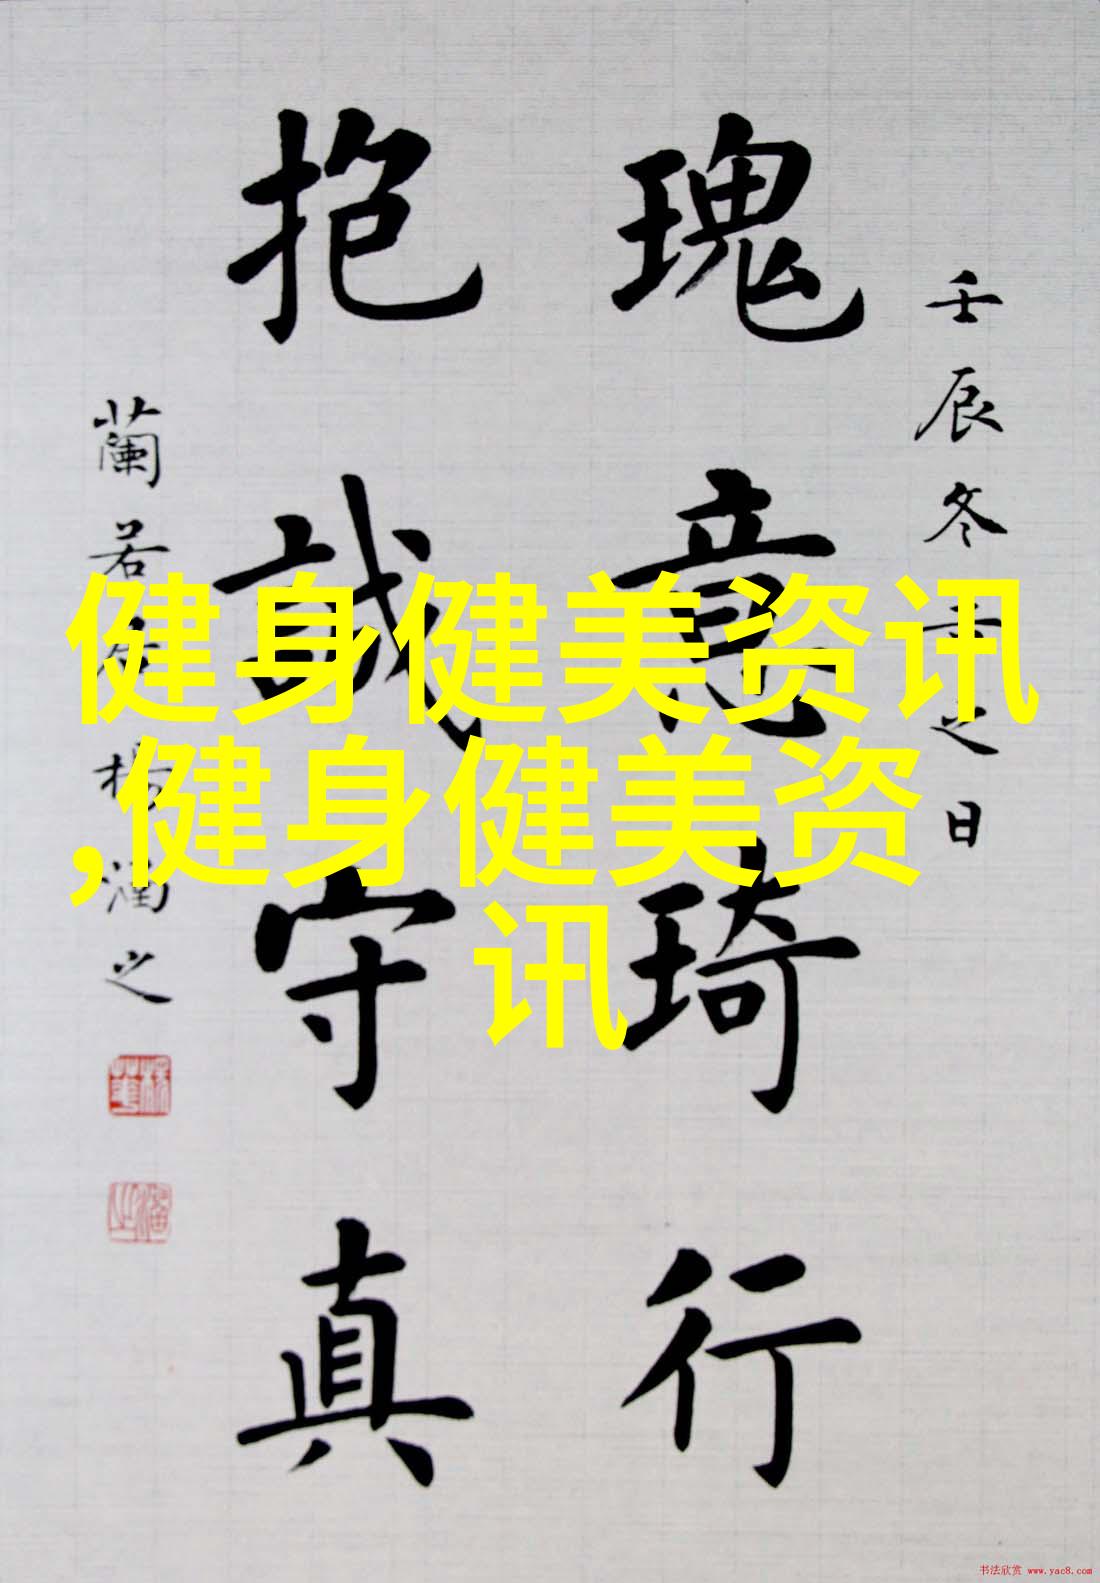 壬辰冬之日
瑰意琦行
抱誠守真
蘭若楊之
健身健美资讯
,健身健美资
讯
书法欣赏 www.yac8.com